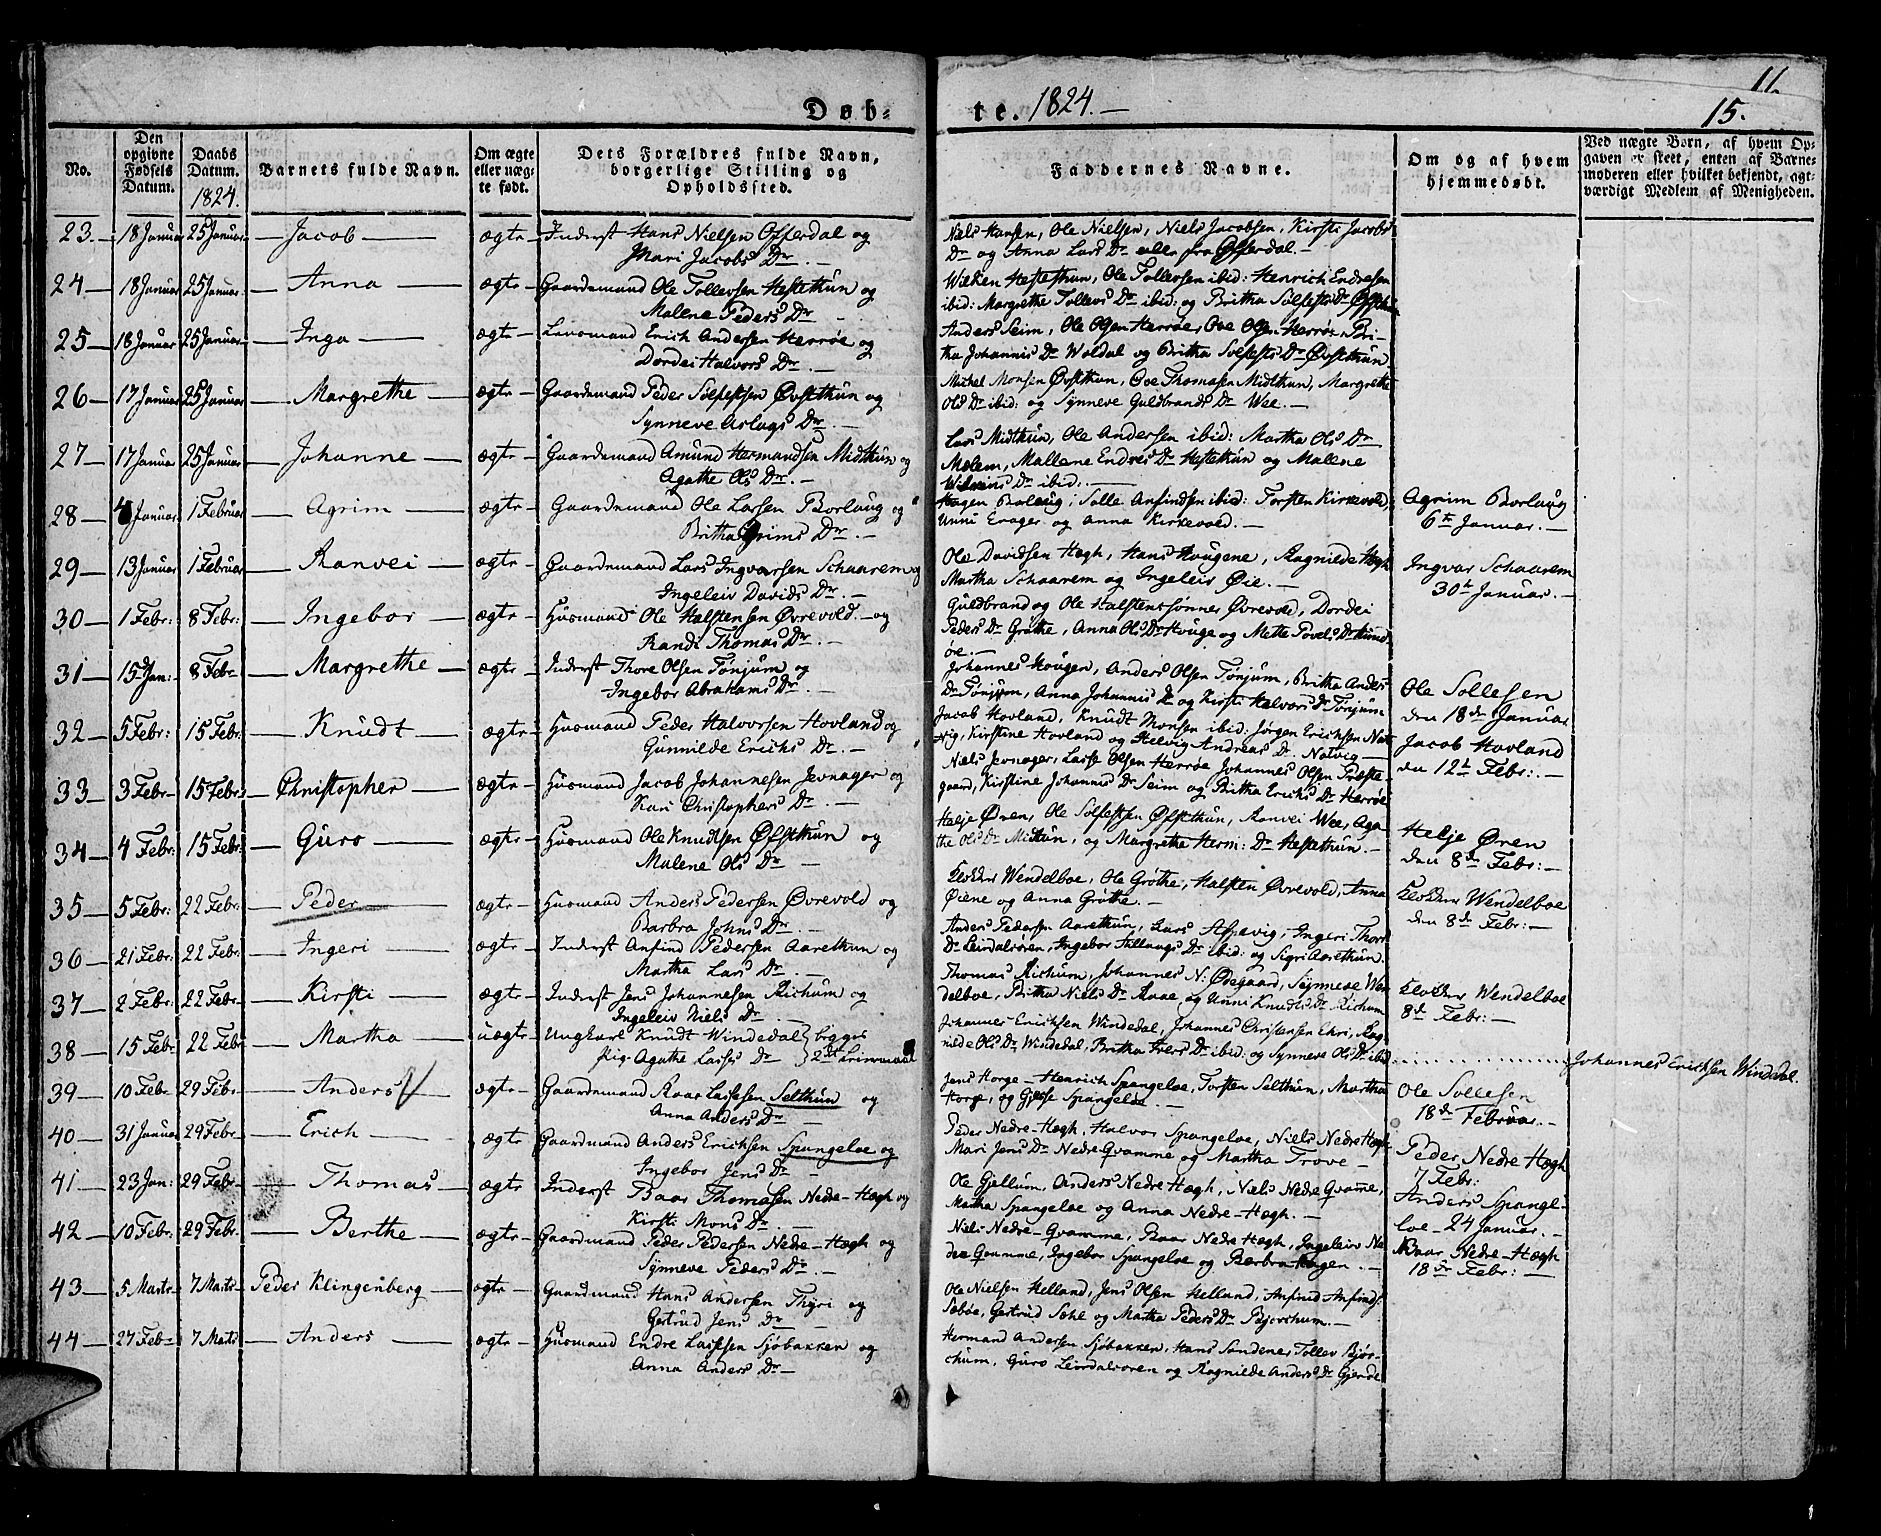 Døb-
te. 1824. —
11.
15.
No.
Den opgivne Fødsels Datum.
Daabs Datum. 1824.
Barnets fulde Navn.
Om ægte eller uægte født.
Dets Forældres fulde Navn, borgerlige Stilling og Opholdssted.
Faddernes Navne.
Om og af hvem hjemmedøbt.
Ved uægte Børn, af hvem Opgaven er skeet, enten af Barnemoderen eller hvilket bekjendt, agtværdigt Medlem af Menigheden.
23. — 18 Januar 25 Januar — Jacob — ægte — Inderst Hans Nielsen Offerdal og
Mari Jacobs Dr. —
Niels Hansen, Ole Nielsen, Niels Jacobsen, Kirsti Jacobs
Dr og Anna Lars Dr alle fra Offerdal. —
24 — 18 Januar 25 Januar — Anna — ægte — Gaardemand Ole Tollevsen Hestethun og
Malene Peders Dr —
Ole Tollevsen ibid: Henrich Endresen
ibid: Margrethe Tollevs Dr ibid: og Britha Solfests Dr
25 — 18 Januar 25 Januar — Inga — ægte — Erich Andersen Herrøe og
Dordei Halvors Dr. —
Anders Seim, Ole Olsen Herrøe, Ove Olsen Herrøe, Bri-
tha Johannis Dr Woldal og Britha Solfests Dr Øvstethun
26 — 17 Januar 25 Januar — Margrethe — ægte — Gaardemand Peder Solfestsen Øvstethun og
Synneve Aslags Dr. —
Michel Monsen Øvstethun, Ove Thomasen Midthun, Margrethe
Ols Dr ibid: og Synneve Guldbrands Dr Wee. —
27 — 17 Januar 25 Januar — Johanne — ægte — Gaardemand Amund Hermandsen Midthun og
Agathe Ols Dr. —
Lars Midthun, Ole Andersen ibid: Martha Ols Dr
Molem, Mallene Endres Dr Hestethun og Malene
Dr ibid: —
28 — 4 Januar 1 Februar — Agrim — ægte — Gaardemand Ole Larsen Borlaug og
Britha Grims Dr. —
Hagen Borlaug, Salle Anfindsen ibid: Torsten Kirkevold,
Unni Erager og Anna Kirkevold. —
Agrim Borlaug
6te Januar. —
29 — 13 Januar 1 Februar — Ranvei — ægte — Gaardemand Lars Ingvarsen Schaarem og
Ingeleiv Davids Dr. —
Ole Davidsen Hægh, Hans Hougene, Ragnilde Hægh
Martha Schaarem og Ingeleiv Øie. —
Ingvar Schaarem
30te Januar. —
30 — 1 Febr: 8 Febr: — Ingebor — ægte — Husmand Ole Halstensen Øvrevold — og
Randi Thomas Dr. —
Guldbrand og Ole Halstenssønner Øvrevold, Dordei
Peders Dr Grøthe, Anna Ols Dr Houge og Mette Povels Dr
øe. —
31 — 15 Jan: 8 Febr — Margrethe — ægte — Inderst Thore Olsen Tønjum og
Ingebor Abrahams Dr. —
Johannes Hougen, Anders Olsen Tønjum, Britha Anders
Dr Tønjum, Anna Johannis Dr og Kirsti Halvors Dr Tønjum
Ole Sollesen
den 18de Januar
32 — 5 Febr: 15 Febr. — Knudt — ægte — Husmand Peder Halvorsen Hovland og
Gunnilde Erichs Dr. —
Jacob Hovland, Knudt Monsen ibid. Jørgen Erichsen Nat-
vig, Kirstine Hovland og Helvig Andreas Dr. Natvig —
Jacob Hovland
den 12te Febr: —
33 — 3 Febr — 15 Febr: — Christopher — ægte — Husmand Jacob Johannesen Jevnager og
Kari Christophers Dr. —
Niels Jevnager, Lasse Olsen Herrøe Johannes Olsen Præste-
gaard, Kirstine Johannis Dr Seim og Britha Erichs Dr Herrøe
34 — 4 Febr: 15 Febr: — Guro — ægte — Husmand Ole Knudtsen Øfstethun og
Malene Ols Dr —
Helje Øren, Ole Solfestsen Øfstethun, Ranvei Wee, Aga-
the Ols Dr Midthun, og Margrethe Herm: Dr Hestethun. —
Helje Øren
den 8de Febr: —
35 — 5 Febr: 22 Febr: — Peder — ægte — Husmand Anders Pedersen Øvrevold og
Barbra Johns Dr. —
Klokker Wendelboe, Ole Grøthe, Halsten Øvrevold, Anna
Øiene og Anna Grøthe. —
Klokker Wendelboe
den 8de Febr: —
36 — 21 Febr: 22 Febr: — Ingeri — ægte — Inderst Anfind Pedersen Aarethun og
Martha Lars Dr. —
Anders Pedersen Aarethun, Lars Ingeri Thors
Dr Leirdalsøren, Ingebor Dr ibid: og Sigri Aarethun.
37 — 2 Febr: 22 Febr — Kirsti — ægte — Inderst Jens Johannesen Richum og
Ingeleiv Niels Dr. —
Thomas Richum, Johannes N: Ødegaard, Synneve Wen-
delboe, Britha Niels Dr og Unni Knudts Dr Richum
Klokker Wendelboe
8de Febr: —
38 — 15 Febr 22 Febr — Martha — uægte — Ungkarl Knudt Windedal } begges
Pige Agathe Lasses Dr } 2det Leiermaal
Johannes Erichsen Windedal, Johannes Christensen Ehri, Rag-
nilde Ols Dr Windedal, Britha Dr ibid: og Synneve Ols Dr ibid
Johannes Erichsen Windedal.
39 — 10 Febr: 29 Febr: — Anders — ægte — Gaardemand Roar Lassesen Selthun og
Anna Anders Dr —
Jens Horge — Henrich Spangeloe, Torsten Selthun, Martha
Horge, og Spangeloe —
Ole Sollesen
18de Februar. —
40 — 31 Januar 29 Febr — Erich — ægte — Gaardmand Anders Erichsen Spangeloe og
Ingebor Jens Dr —
Peder Nedre-Hægh, Halvor Spangeloe, Niels Nedre Hægh
Mari Jens Dr Nedre Qvamme og Martha Trove —
Peder Nedre Hægh
7 Febr:
41 — 23 Jan: 29 Febr — Thomas — ægte — Inderst Baar Thomasen Nedre-Hægh og
Kirsti Mons Dr. —
Ole Gjellum, Anders Nedre Hægh, Niels Nedre Qvamme,
Martha Spangeloe og Anna Nedre-Hægh. —
Anders Spange-
loe — 24 Januar. —
42 — 10 Febr: 29 Febr. — Berthe — ægte — Gaardmand Peder Pedersen Nedre-Hægh og
Synneve Peders Dr. —
Niels Nedre-Qvamme, Baar Nedre Hægh, Ingeleiv Ne-
dre Qvamme, Ingebor Spangeloe og Barbra Hougen. —
Baar Nedre-Hægh
18de Febr: —
43 — 5 Marts — 7 Marts — Peder Klingenberg — ægte — Gaardmand Hans Andersen Thyri og
Gertrud Jens Dr —
Ole Nielsen Helland, Jens Olsen Helland, Anfind Anfinds:
Sæbøe, Gertrud Sohl og Martha Peders Dr Bjørchum. —
44 — 27 Feb — 7 Marts — Anders — ægte — Husmand Endre Lassesen Sjøbakken og
Anna Anders Dr —
Hermand Andersen Sjøbakken, Hans Sandenes Tollev Bjør-
chum, Guro Leirdalsøren og Ragnilde Anders Dr Gjerde